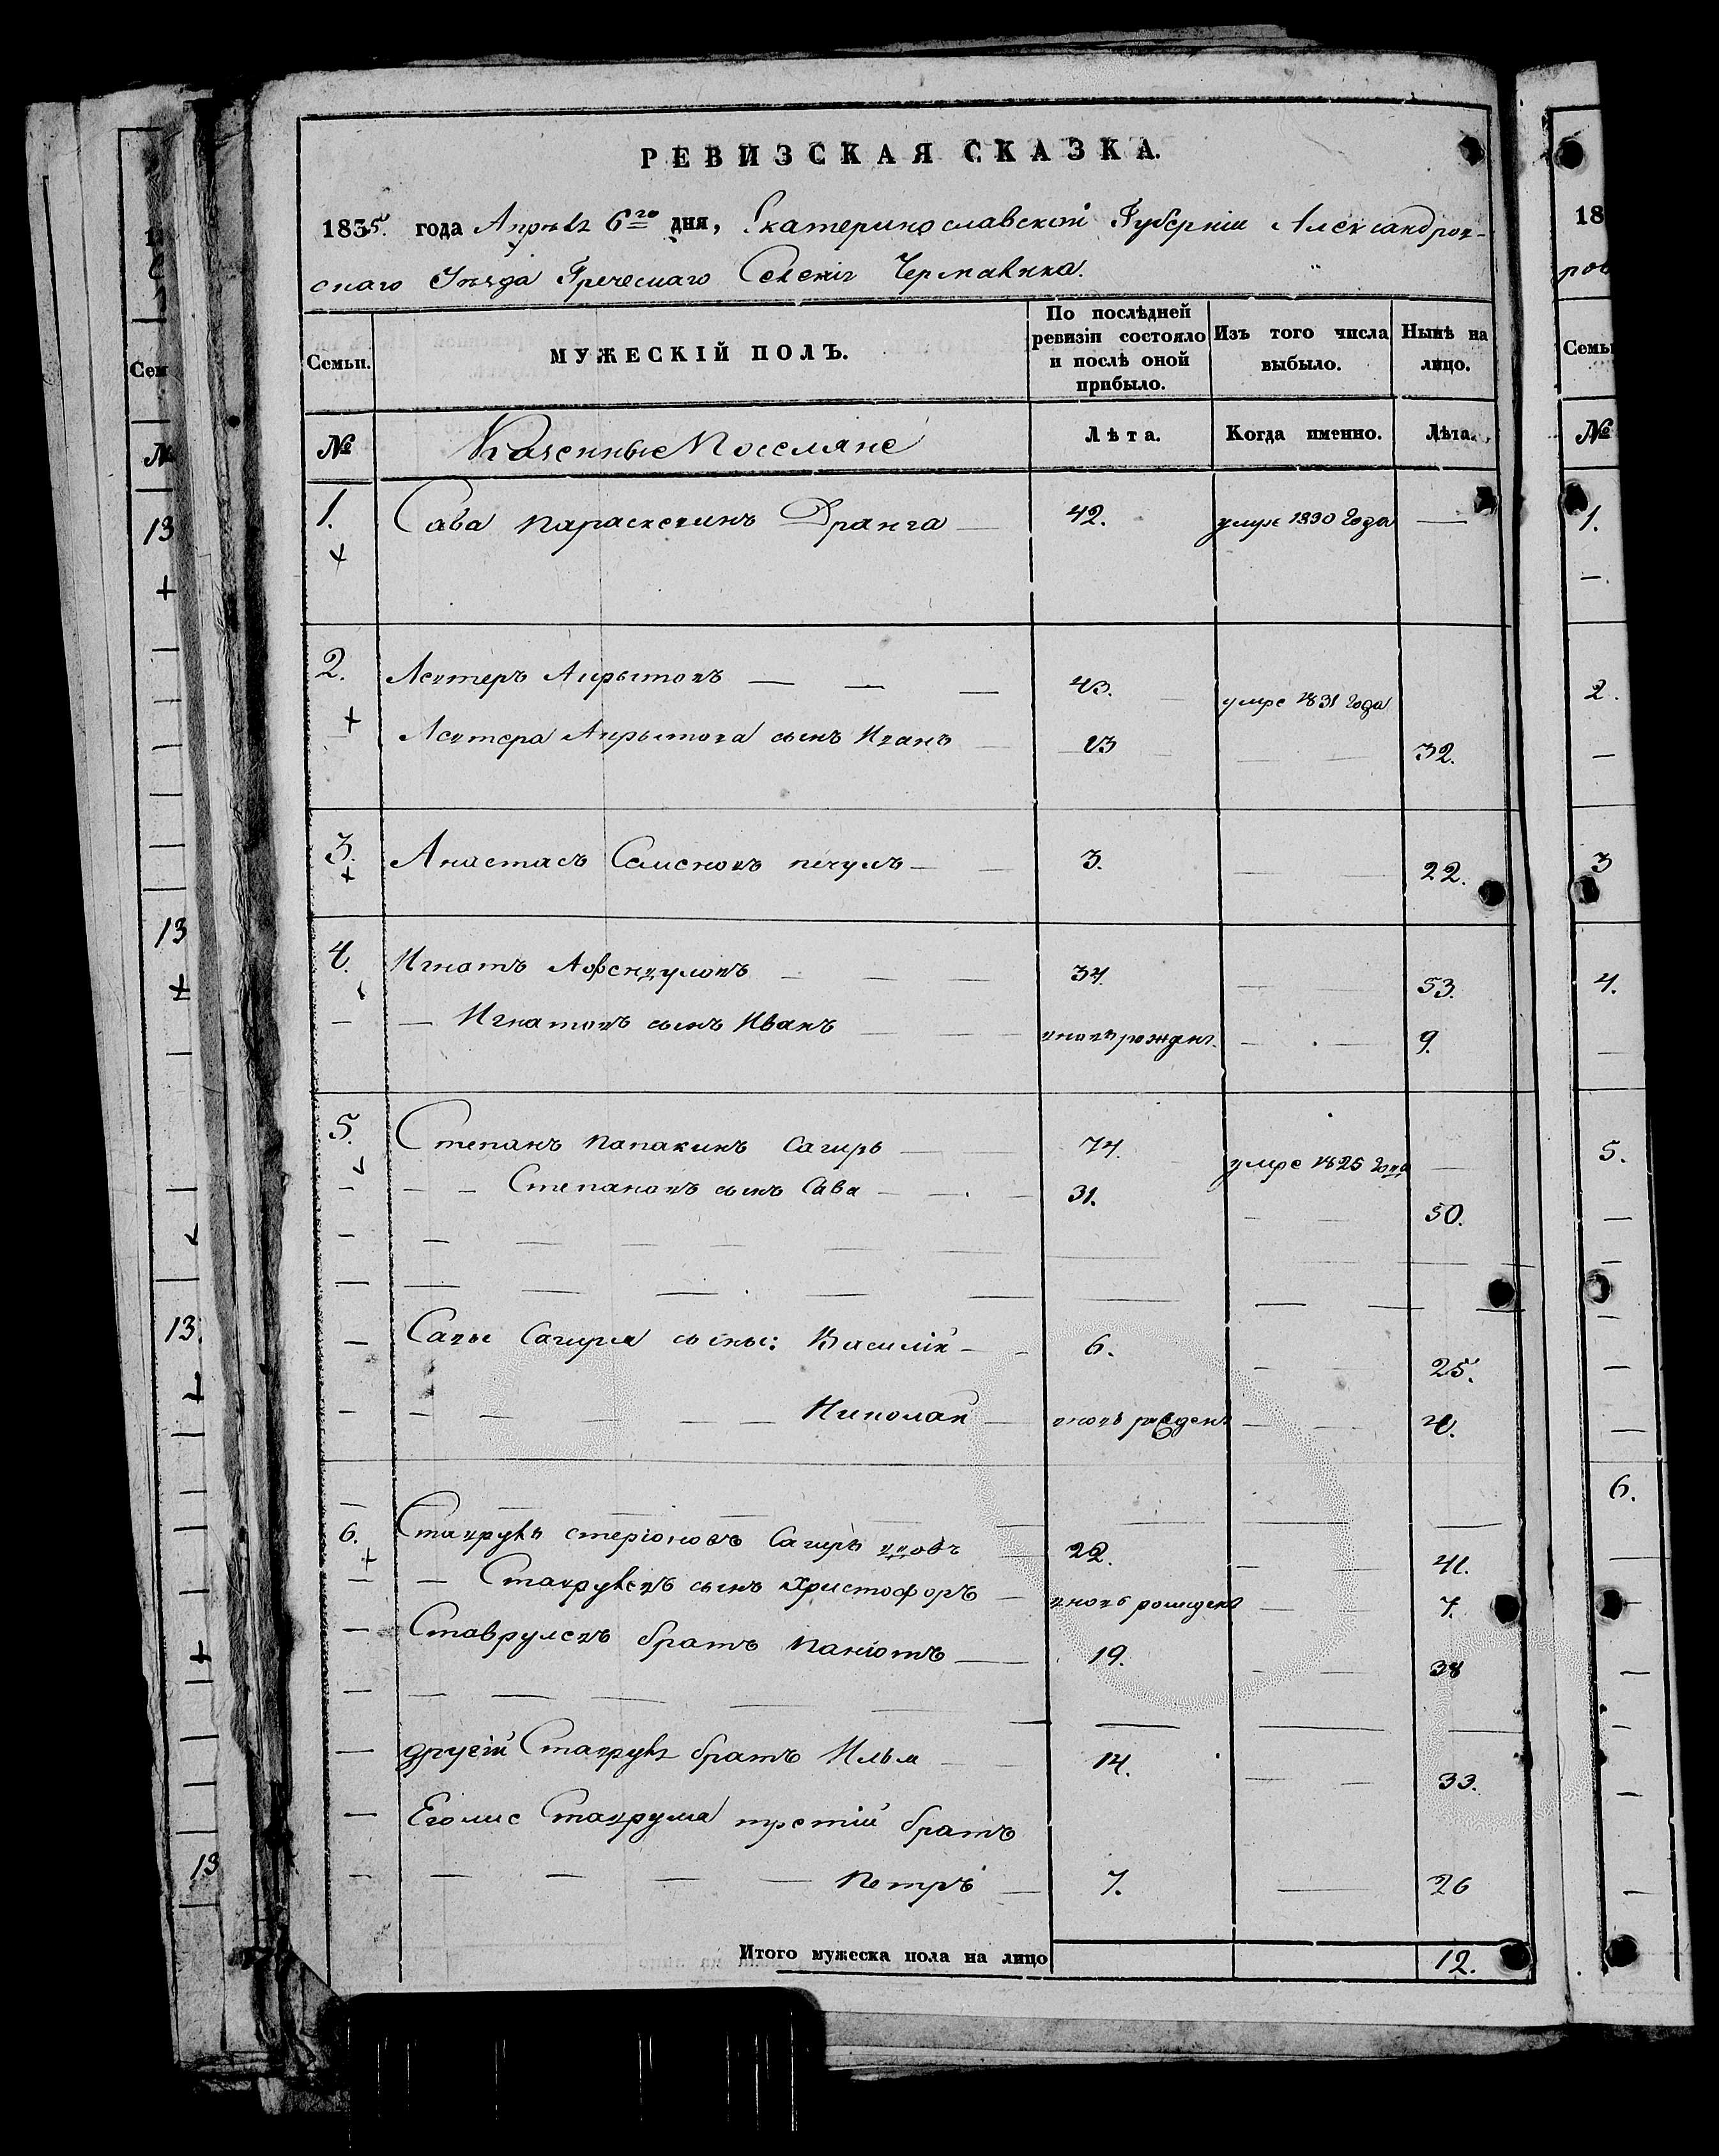 РЕВИЗСКАЯ СКАЗКА.
1835. года Апрѣля 6го дня, Екатеринославской Губерніи Александров-
скаго Уѣзда Греческаго Селенія
Семьи. МУЖЕСКІЙ ПОЛЪ. По послѣдней ревизіи состояло и послѣ оной прибыло. Изъ того числа выбыло. Нынѣ на лицо.
№ Казенные Поселяне Лѣта. Когда именно. Лѣта.
1. Сава Параскевинъ Дранга 42. умре 1830 Года
2. 43. умре 1831 Года
сынъ Иванъ 13 32.
3. Анастасъ Семеновъ 3. 22.
4. Игнатъ 34. 53.
Игнатовъ сынъ Иванъ вновь рожденъ 9.
5. Степанъ Папакинъ Сагиръ 74. умре 1825 Года
Степановъ сынъ Сава 31. 50.
Савы Сагира сыны: Василій 6. 25.
Николай вновь рожденъ 4.
6. Ставрулъ Стеріоновъ Сагиръ 22. 41.
Ставрулевъ сынъ Христофоръ вновь рожденъ 7.
Ставрулевъ братъ Паніотъ 19. 38
другій Ставрула братъ Илья 14. 33.
Ставрула третій братъ
Петръ 7. 26
Итого мужеска пола на лицо 12.